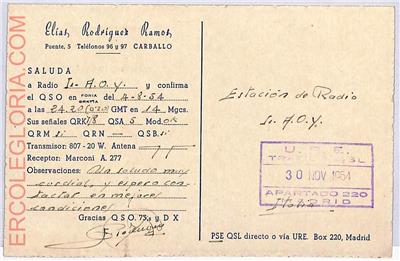 Elías Rodríguez Ramos
Puente, 5 Teléfonos 96 y 97 CARBALLO
SALUDA
a Radio I1. A.O.Y. y confirma
el QSO en FONIA GRAFIA del 4-8-54
a las 24.20 (0/20) GMT en 14 Mgcs.
Sus señales QRK 7/8 QSA 5 Mod. OK
QRM si QRN — QSB. si
Transmisor: 807 - 20 W. Antena
Receptor: Marconi A. 277
Observaciones: Un saludo muy
cordial, y espero con-
tactar en mejores
condiciones
Gracias QSO. 73,s y DX
Estación de Radio
I1. A.O.Y.
Italia
U. R. E.
30 NOV 1954
APARTADO 220
MADRID
PSE QSL directo o vía URE. Box 220, Madrid
ERCOLEGLORIA.COM